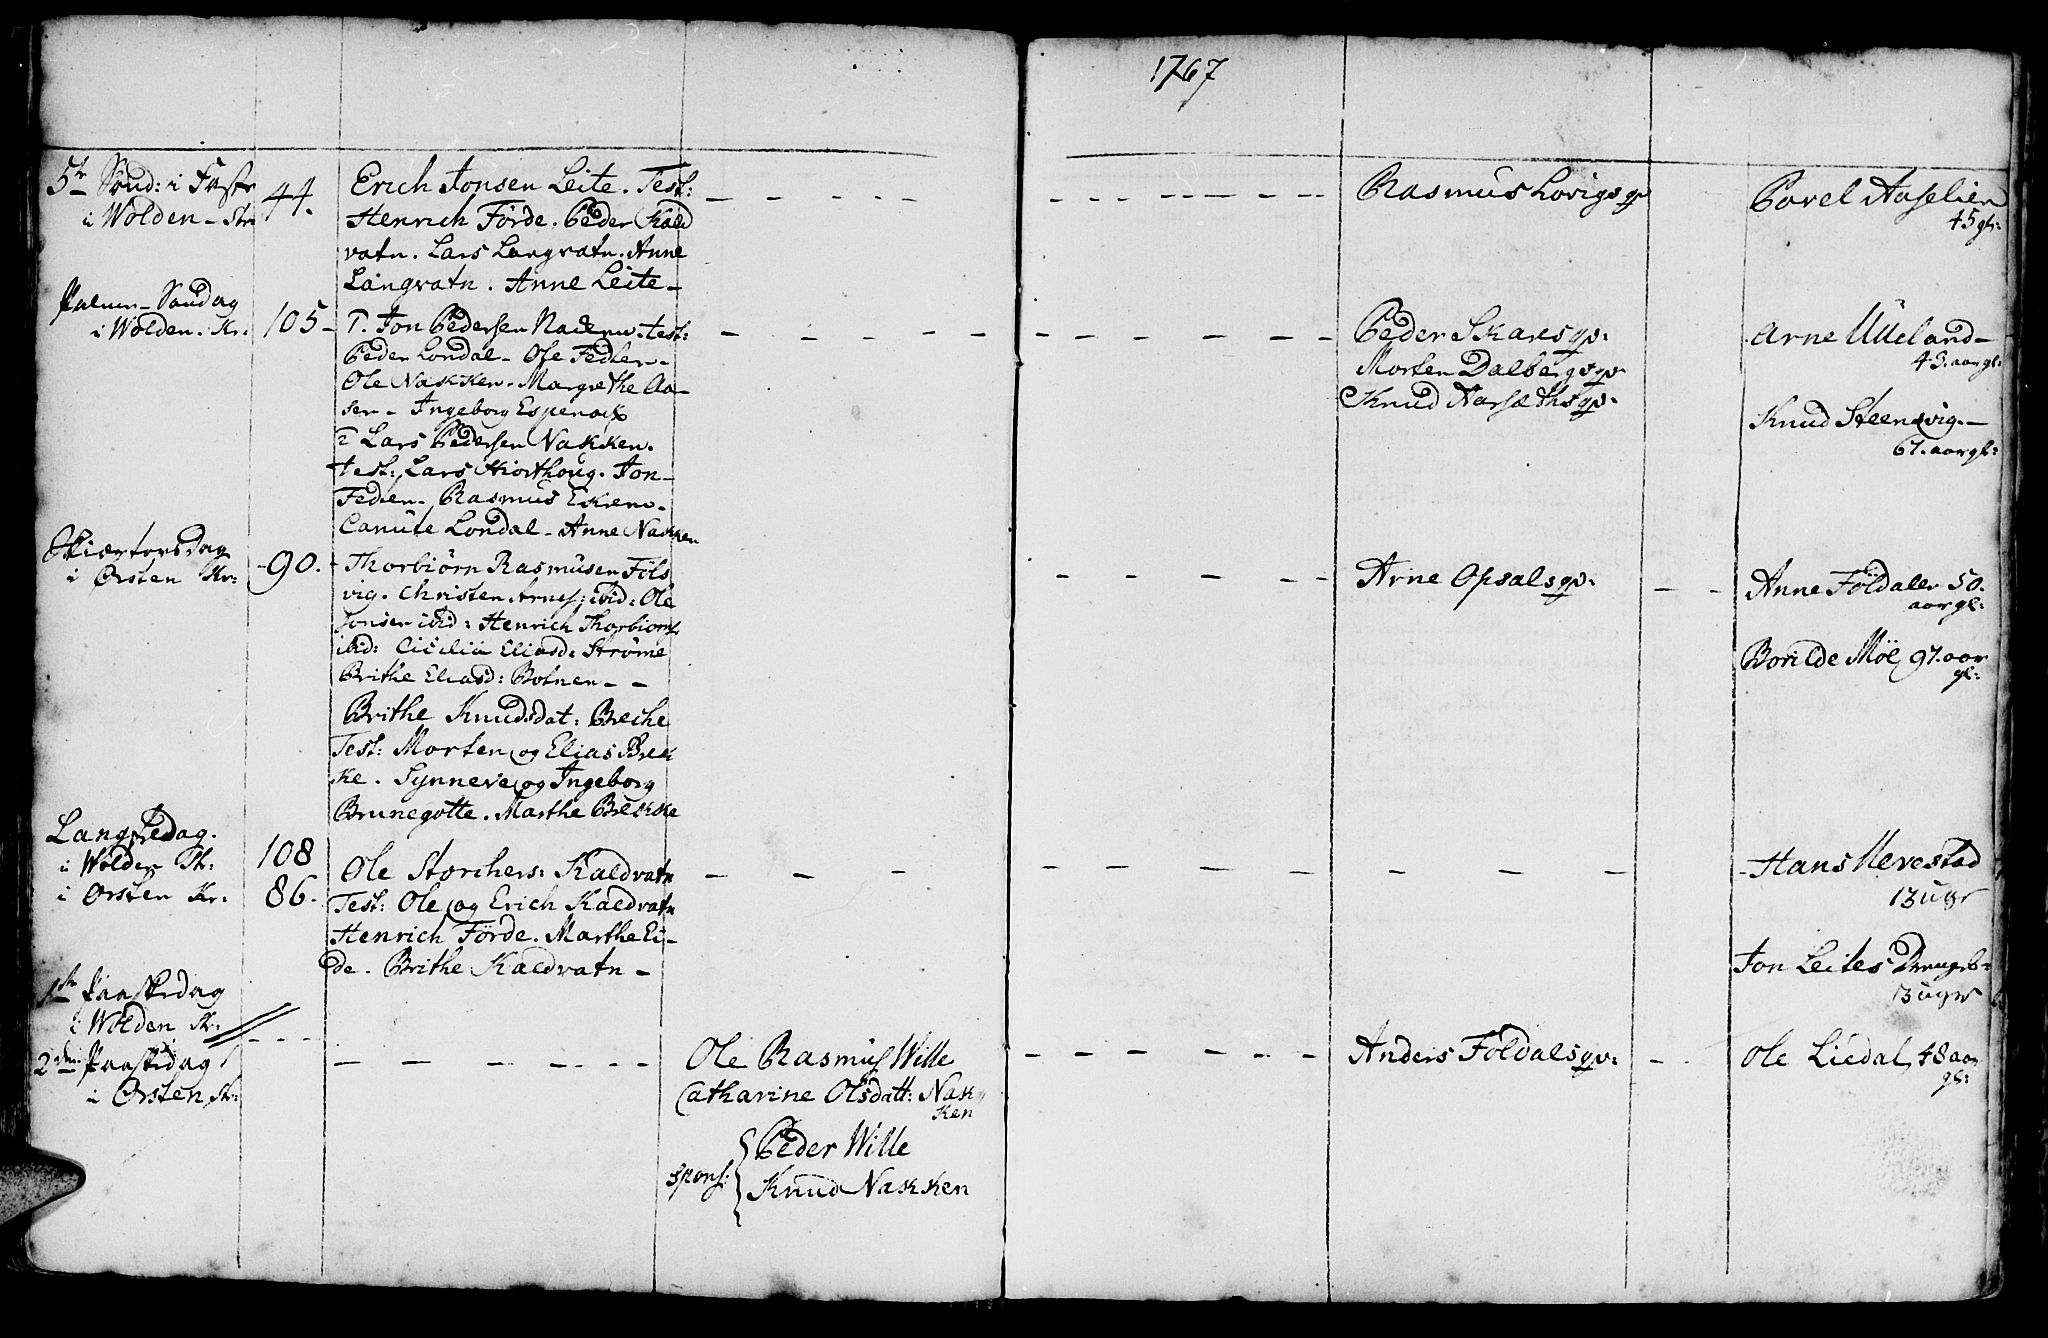 1767
5te Sønd: i Faste
i Wolden - Kr:
44.
Erich Jonsen Leite. Test:
Henrich Förde. Peder Kald
vatn. Lars Langvatn. Anne
Langvatn. Anne Leite -
Rasmus Lovigs qv
Povel Aaselien
45 gl:
Palme-Søndag
i Wolden. Kr:
105 -
1. Jon Pedersen test:
Peder Londal - Ose Fedien -
Ole Nakken. Margrethe Aa-
sen - Ingeborg Espenoes
2 Lars Pedersen Nakken.
test: Lars Hiorthoug. Jon
Fedien. Rasmus Ekrem.
Canute Londal - Anne Nakken
Peder Skars qv:
Morten Dalbergs qv
Knud Aarsæths qv.
Arne Uueland -
43. aar gl:
Knud Steensvig. -
67. aar gl:
Skiærtorsdag
i Orsten Kr:
- 90. -
Thorbiörn Rasmusen Föls
vig. Christen Arnes; ibid: Ole
Jonsen ibid: Henrich Thorbiörns
ibid: Cicilia Eliasd: Ströme
Brithe Eliasd: Botnen - -
Brithe Knudsdat: Breche
Test: Morten og Elias Brek
ke. Synneve og Ingeborg
Brunegotte. Marthe Brekke
Arne Opsals qv:
Anne Földalen 50.
aar gl:
Borilde Möe 97. aar
gl:
Langfredag.
i Wolden Kr:
i Orsten Kr.
108
86.
Ole Storchers: Kaldvatn
Test: Ole og Erich Kaldvatn
Henrich Förde. Marthe Ei-
de. Brithe Kaldvatn -
- Hans Mevestad
13 uger
Jon Leites Drengeb:
13 uger
1ste Paaskedag
i Wolden Kr:
2den Paaskedag
i Orsten Kr:
Ole Rasmus Wille
Catharine Olsdatt: Nak
ken
spons: { Peder Wille
Knud Nakken
Anders Földals qv:
Ole Liedal, 48 aar
gl: